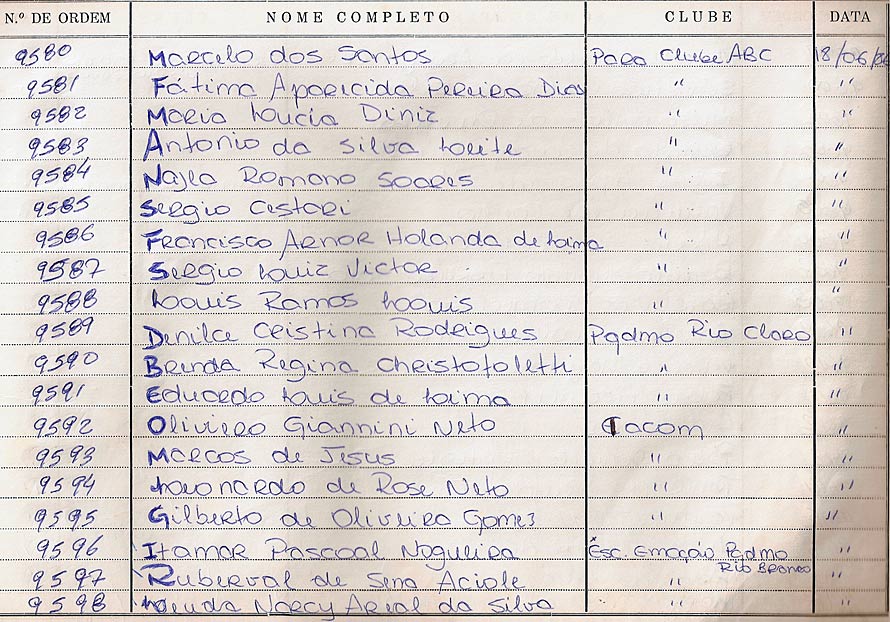 N.º DE ORDEM NOME COMPLETO CLUBE DATA
9580 Marcelo dos Santos Para Clube ABC 18/06/
9581 Fátima Aparecida Pereira Dias " "
9582 Maria Loucia Diniz " "
9583 Antonio da Silva Leite " "
9584 Najla Romano Soares " "
9585 Sergio Cestari " "
9586 Francisco Arnor Holanda de Loima " "
9587 Sergio Louiz Victor " "
9588 Louis Ramos Louis " "
9589 Denilce Cristina Rodrigues Pqdmo Rio Claro "
9590 Brenda Regina Christofoletti " "
9591 Eduardo Louis de Loima " "
9592 Oliviero Giannini Neto Ciacom "
9593 Marcos de Jesus " "
9594 Leonardo de Rose Neto " "
9595 Gilberto de Oliveira Gomes " "
9596 Itamar Pascoal Nogueira Esc. Emoção Pqdmo "
Rio Branco
9597 Ruberval de Sena Aciole " "
9598 Narcy Arial da Silva " "